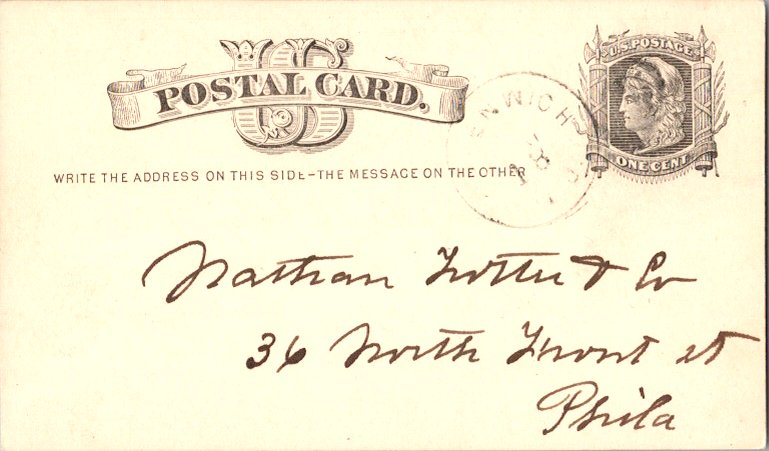 US
POSTAL CARD.
U.S. POSTAGE
ONE CENT
WRITE THE ADDRESS ON THIS SIDE-THE MESSAGE ON THE OTHER
Nathan Trotter & Co
36 North Front st
Phila